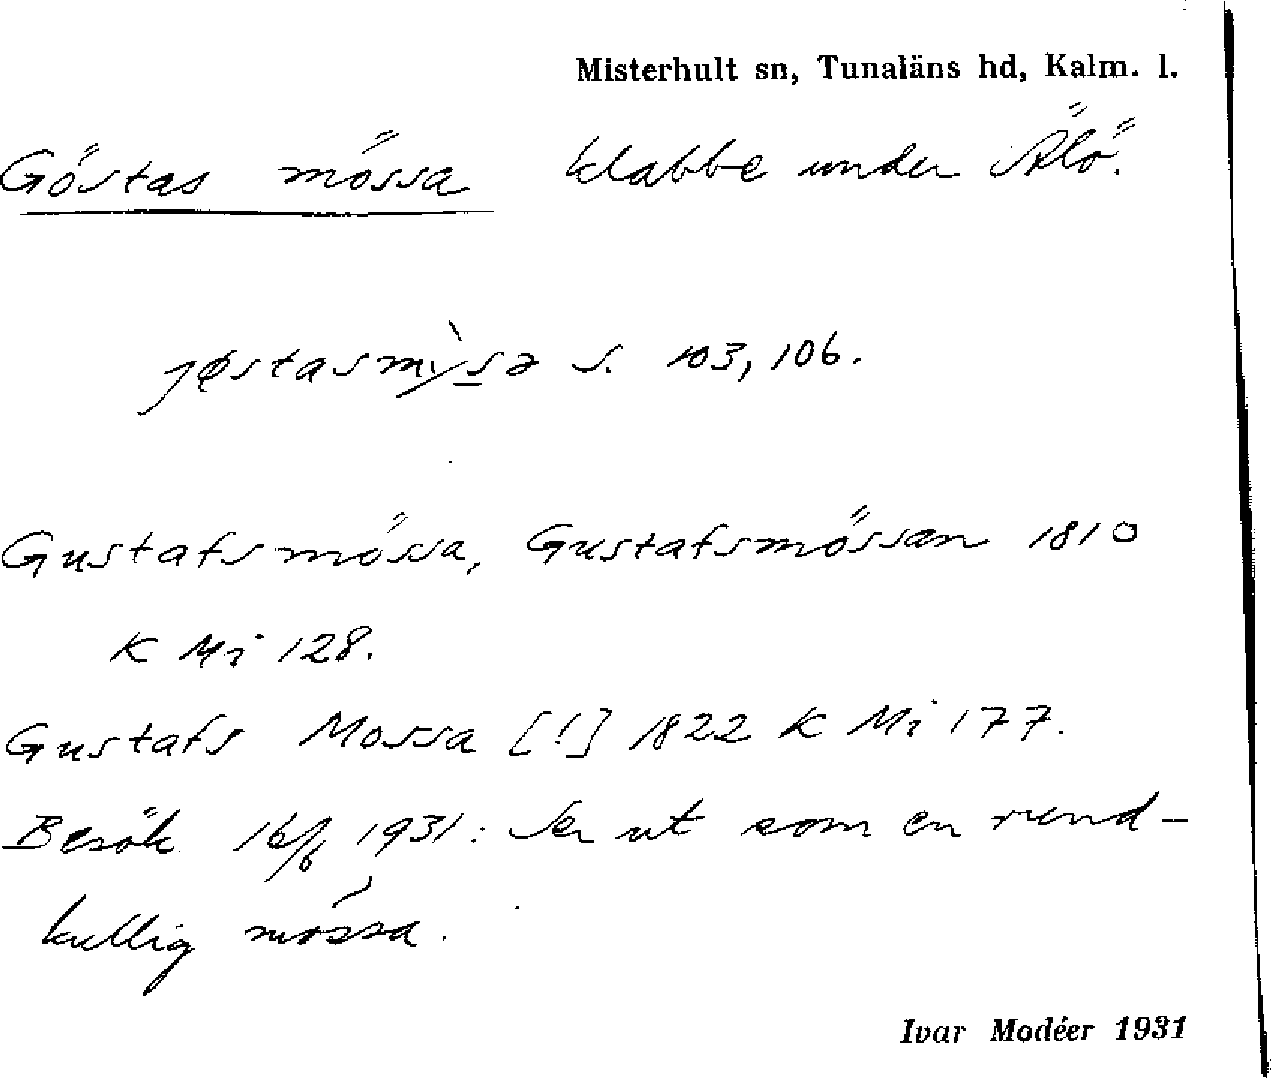 Misterhult sn, Tunaläns hd, Kalm. l.
Göstas mössa klabbe under Älö.
s. 103, 106.
Gustafsmössa, Gustafsmössan 1810
K Mi 128.
Gustafs Mossa [!] 1822 K Mi 177.
Besök 16/6 1931: Ser ut som en rund-
kullig mössa.
Ivar Modéer 1931